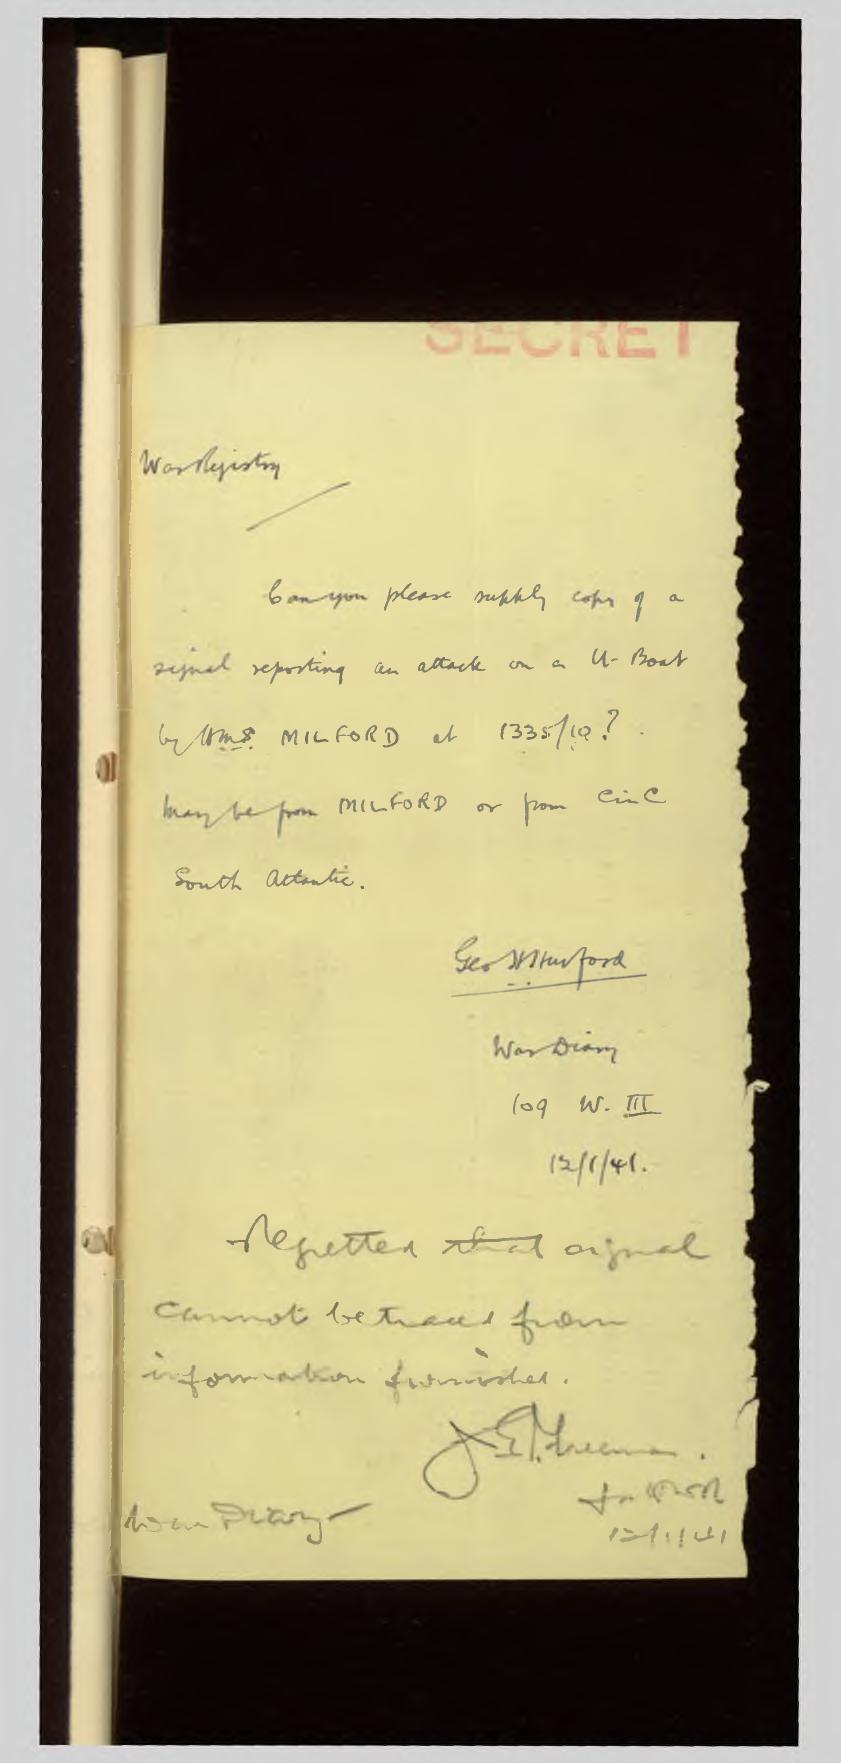 SECRET
War Registry
Can you please supply copy of a
signal reporting an attack on a U-Boat
by HMS. MILFORD at 1335/10?
May be from MILFORD or from CinC
South Atlantic.
Geo H Hurford
War Diary
109 W. III
12/1/41.
Regretted that signal
cannot be traced from
information furnished.
Freeman.
for
War Diary
12/1/41